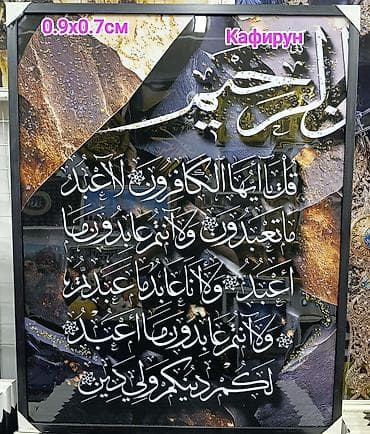 0.9x0.7см
Кафирун
الرحيم
قل يا أيها الكافرون لا أعبد
ما تعبدون ولا أنتم عابدون ما
أعبد ولا أنا عابد ما عبدتم
ولا أنتم عابدون ما أعبد
لكم دينكم ولي دين